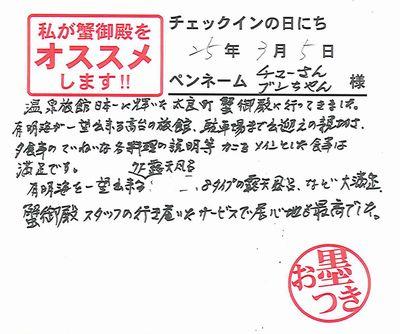 私が蟹御殿を
オススメ
します!!
チェックインの日にち
25年3月5日
ペンネーム チューさん ブンちゃん 様
温泉旅館日本一に輝いた太良町 蟹御殿に行ってきました。
有明海が一望出来る高台の旅館、駐車場までお迎えの親切さ、
夕食事のていねいな各料理の説明等 カニをメインとした食事は
満足です。
有明海を一望出来る 露天風呂 タイプの露天風呂、など大満足
蟹御殿スタッフの行き届いたサービスで居心地も最高でした。
お墨つき